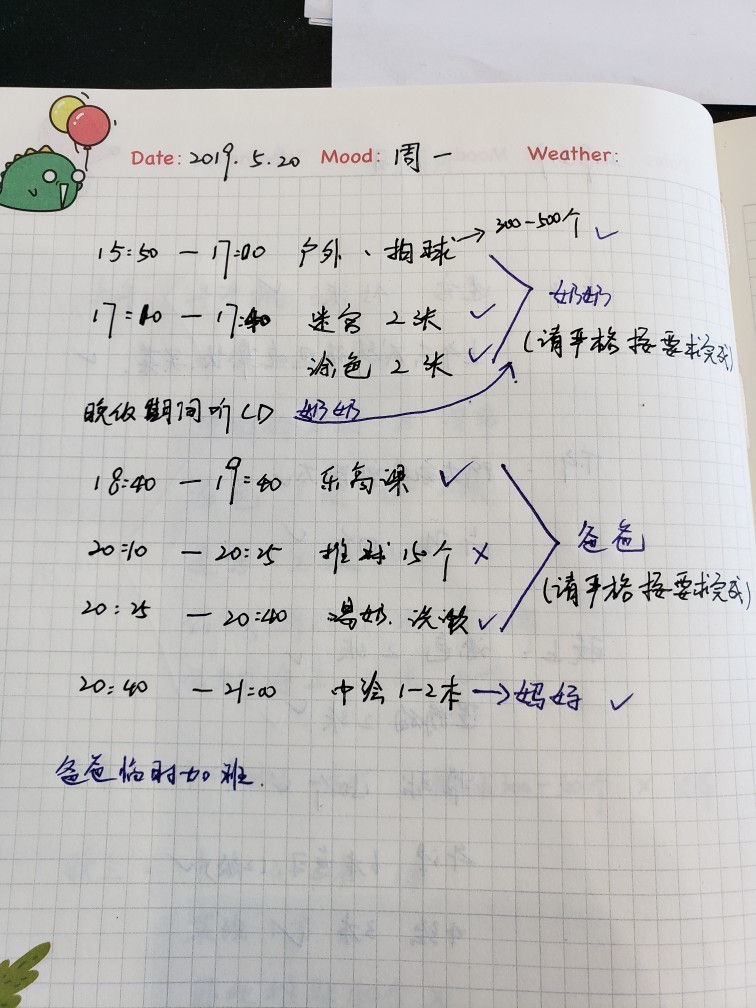 Date: 2019.5.20 Mood: 周一 Weather:
15:50 — 17:00 户外、拍球 → 300-500个 ✓
17:10 — 17:40 迷宫 2张 ✓ 奶奶
涂色 2张 ✓ (请严格按要求完成)
晚饭期间听CD 奶奶
18:40 — 19:40 乐高课 ✓
20:10 — 20:25 推球 150个 × 爸爸
(请严格按要求完成)
20:25 — 20:40 喝奶、洗漱 ✓
20:40 — 21:00 中绘1-2本 → 妈妈 ✓
爸爸临时加班.